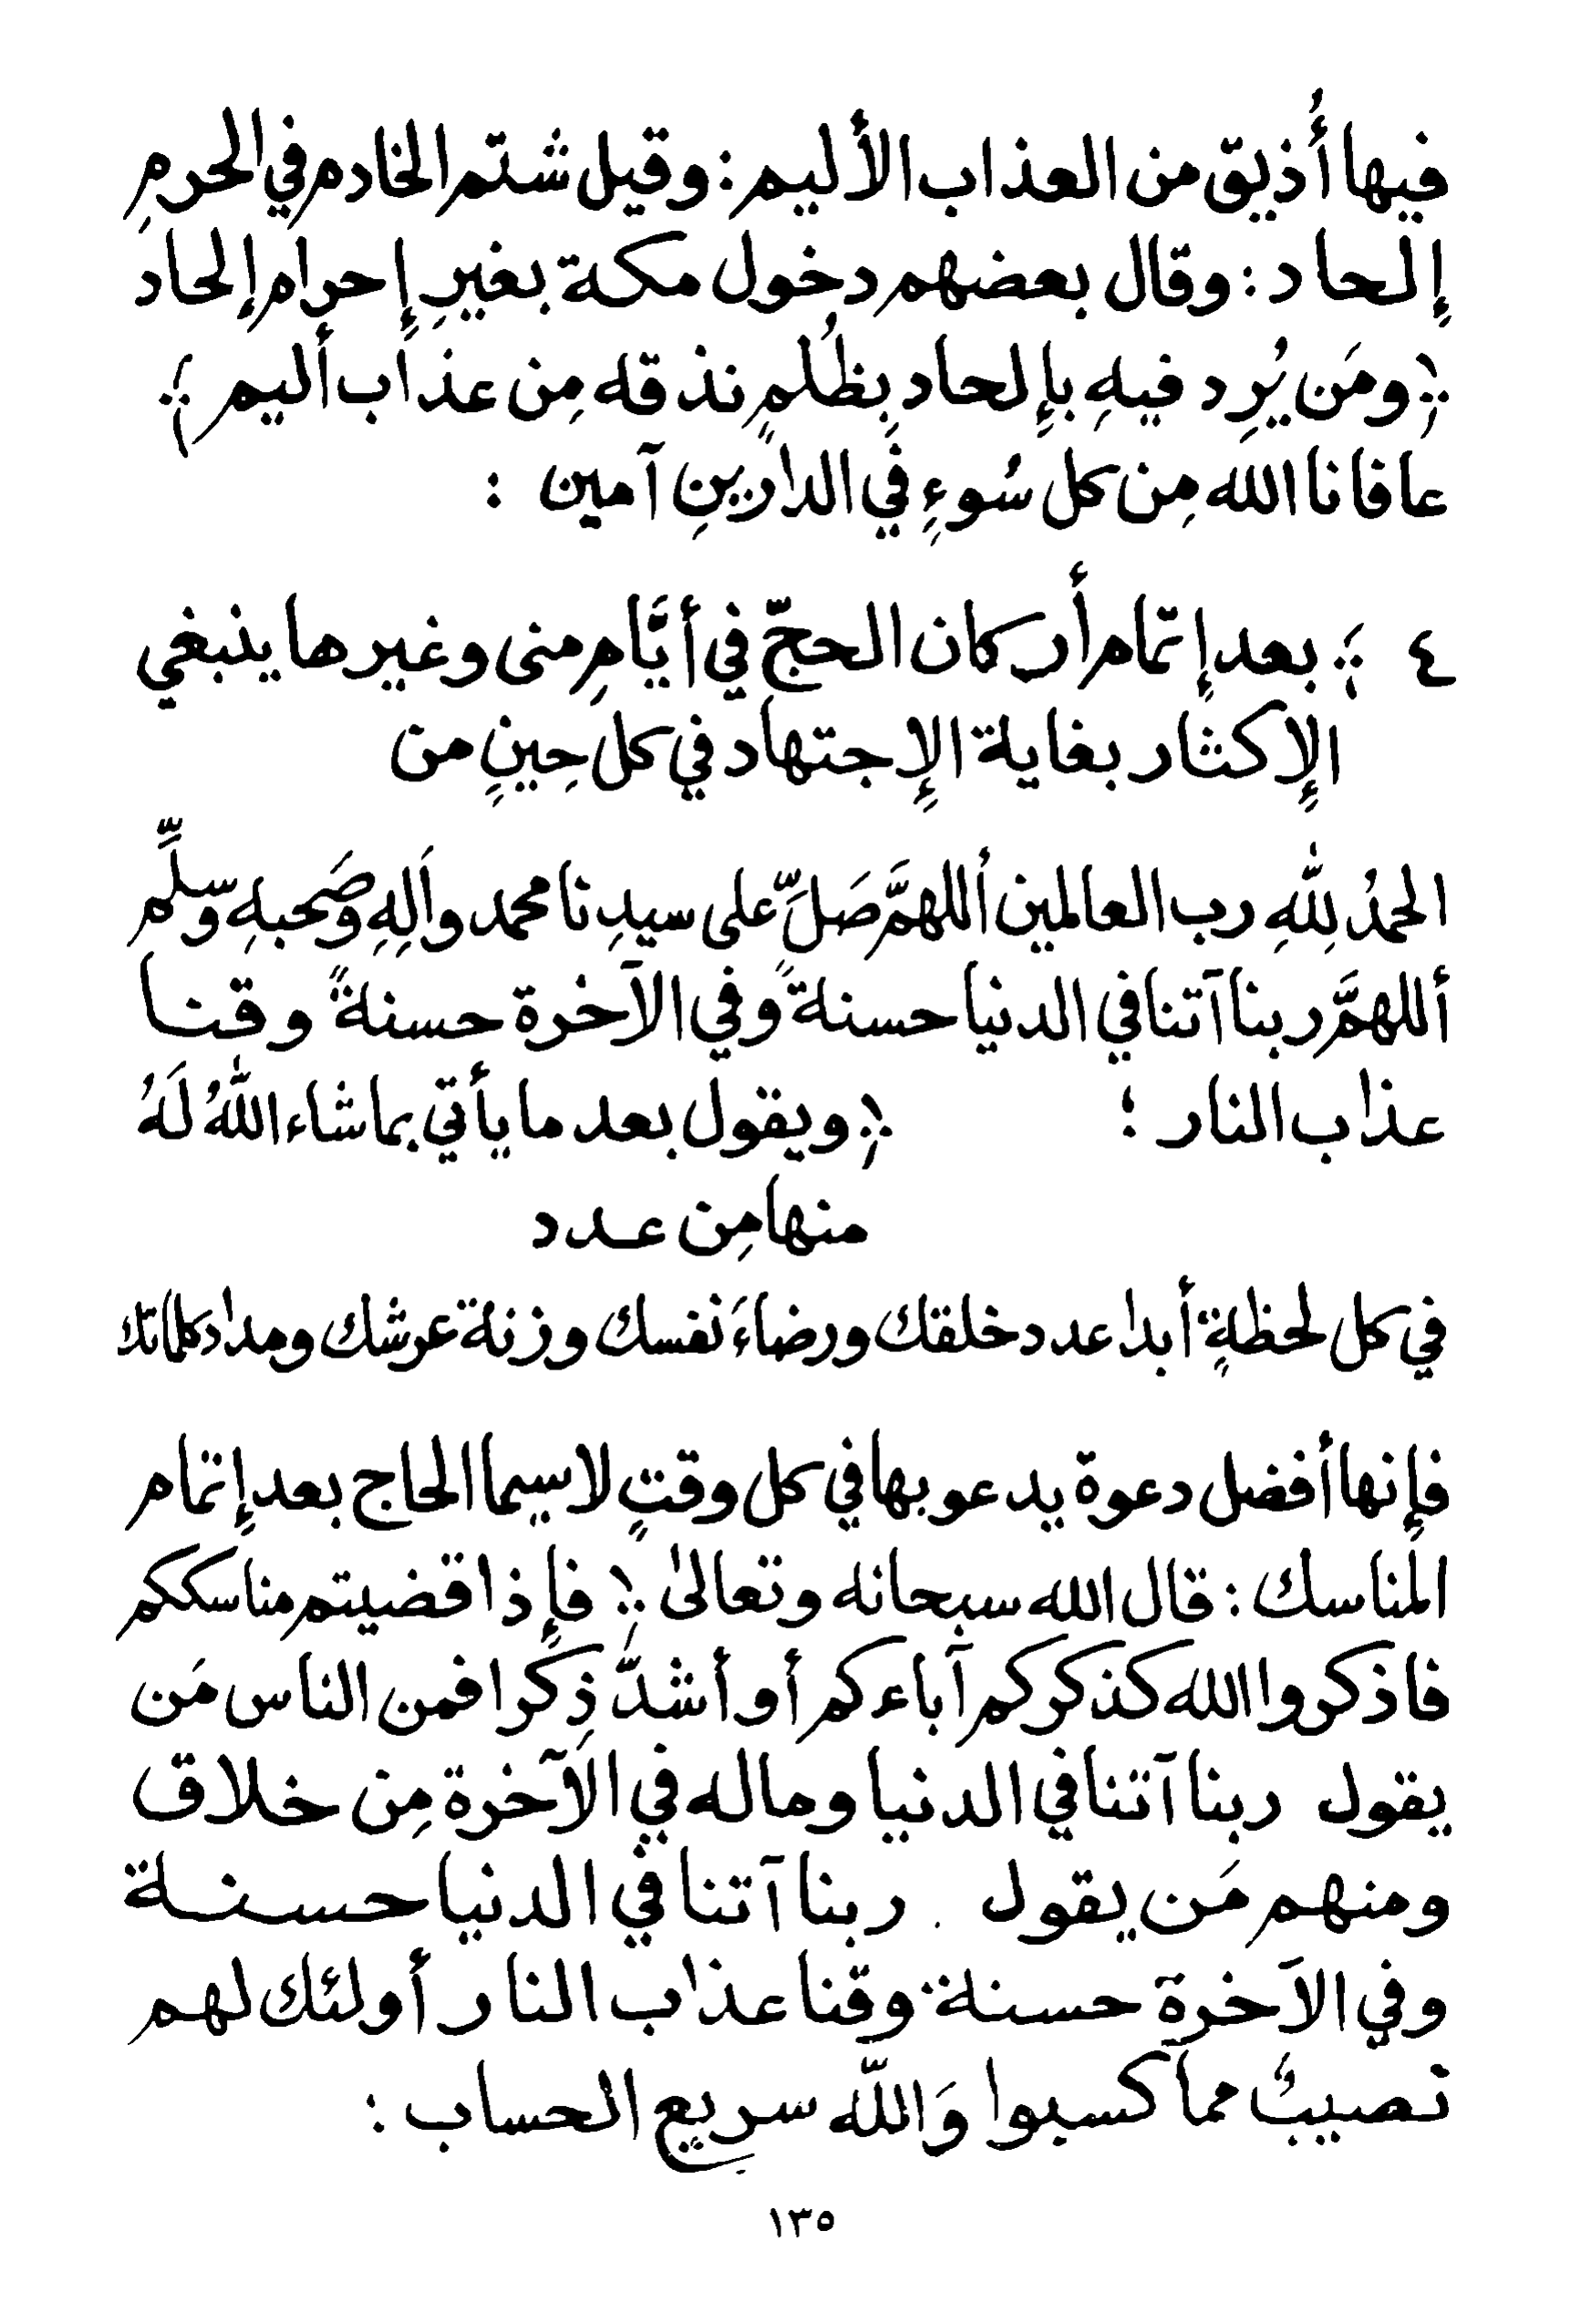 فيها أُذيق من العذاب الأليم : وقيل شتم الخادم في الحرمِ
إِلحاد : وقال بعضهم دخول مكة بغيرِ إِحرام إِلحاد
﴿ ومَن يُرِد فيهِ بإِلحاد بظُلمٍ نذقه مِن عذاب أليم ﴾
عافانا الله مِن كل سُوءٍ في الدارينِ آمين :
٤ ﴾ بعد إِتمام أركان الحجّ في أيَّامِ منى وغيرها ينبغي
الإِكثار بغاية الإِجتهاد في كل حِينٍ من
الحمدُ لِلّٰهِ رب العالمين أللهمَّ صَلِّ على سيدِنا محمد وآلِهِ وصَحبهِ وسلِّم
أللهمَّ ربنا آتنا في الدنيا حسنةً وفي الآخرة حسنةً وقنا
عذاب النار ؛ ﴿ ويقول بعد ما يأتي بما شاء اللهُ لَهُ
منها مِن عدد
في كل لحظةٍ أبدا عدد خلقك ورضاءَ نفسك وزنة عرشك ومداد كلماتك
فإِنها أفضل دعوة يدعو بها في كل وقتٍ لاسيما الحاج بعد إِتمام
المناسك : قال الله سبحانه وتعالىٰ ﴿ فإِذا قضيتم مناسككم
فاذكروا الله كذكركم آباءكم أو أشدّ ذِكرا فمن الناس مَن
يقول ربنا آتنا في الدنيا وماله في الآخرة مِن خلاق
ومنهم مَن يقول . ربنا آتنا في الدنيا حسنة
وفي الآخرة حسنة وقنا عذاب النار أولئك لهم
نصيبٌ مما كسبوا وَاللّه سريع الحساب :
١٣٥